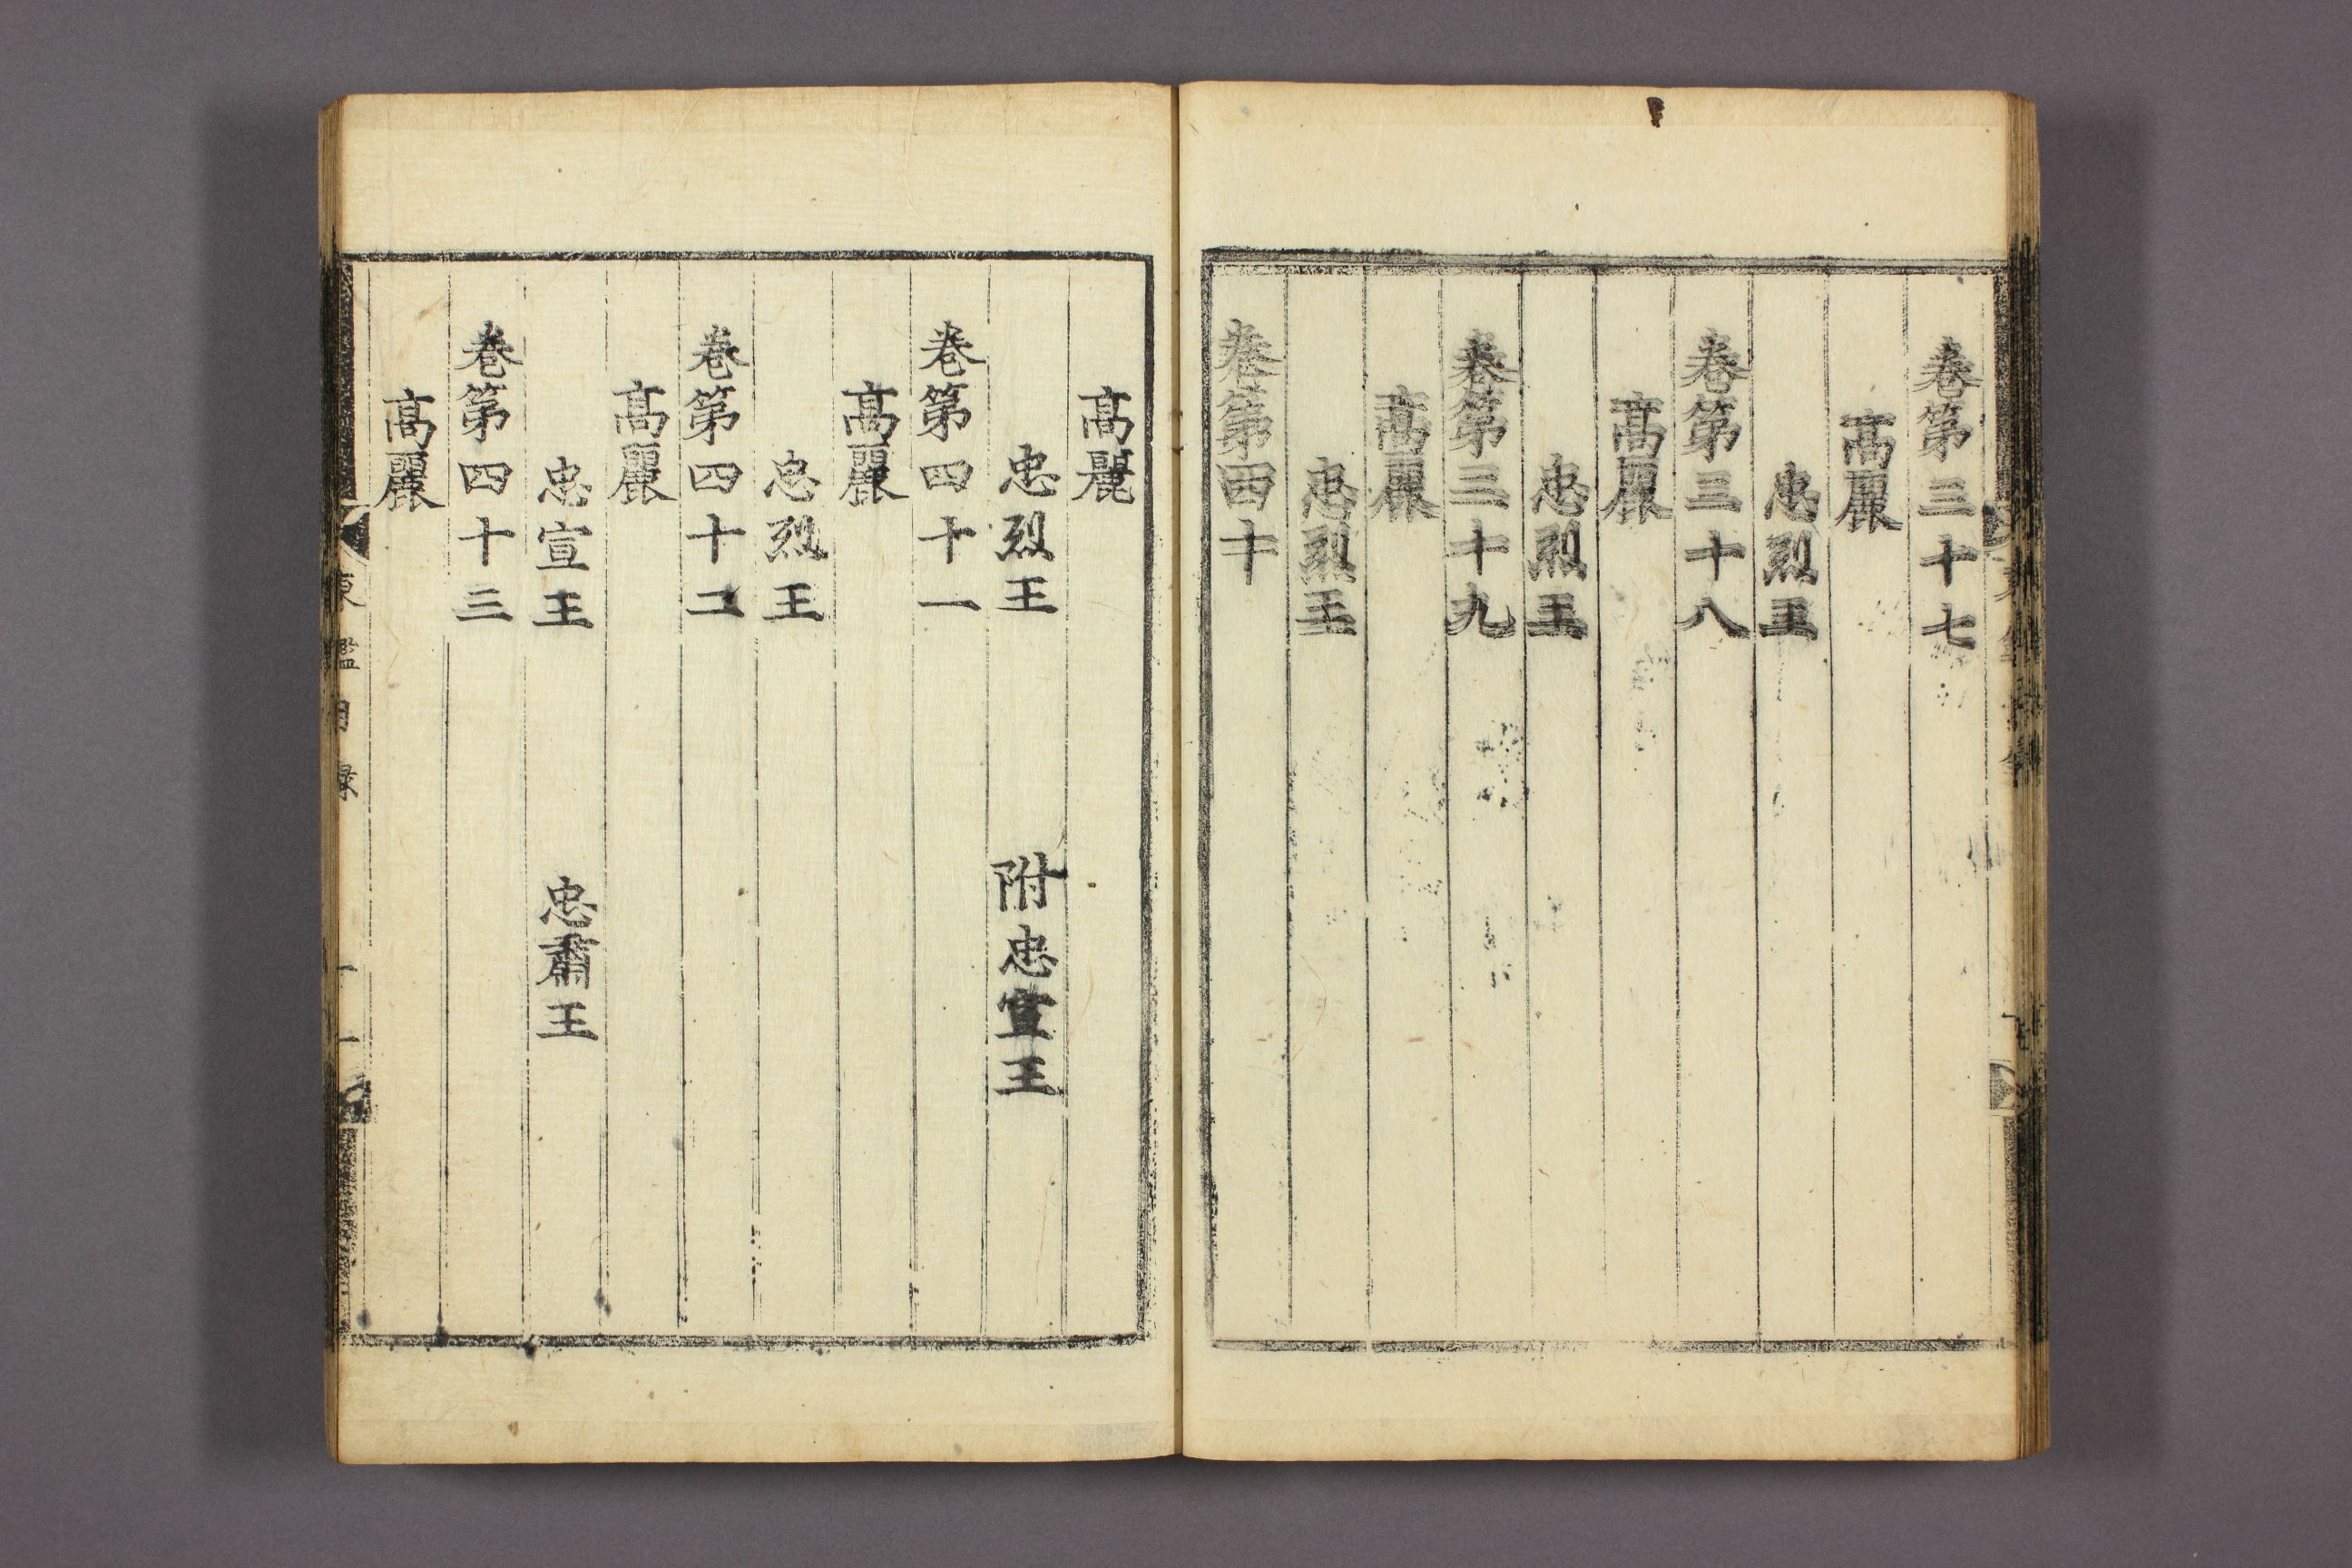 卷第三十七
高麗
忠烈王
卷第三十八
高麗
忠烈王
卷第三十九
高麗
忠烈王
卷第四十
高麗
忠烈王 附忠宣王
卷第四十一
高麗
忠烈王
卷第四十二
高麗
忠宣王 忠肅王
卷第四十三
高麗
東鑑目録